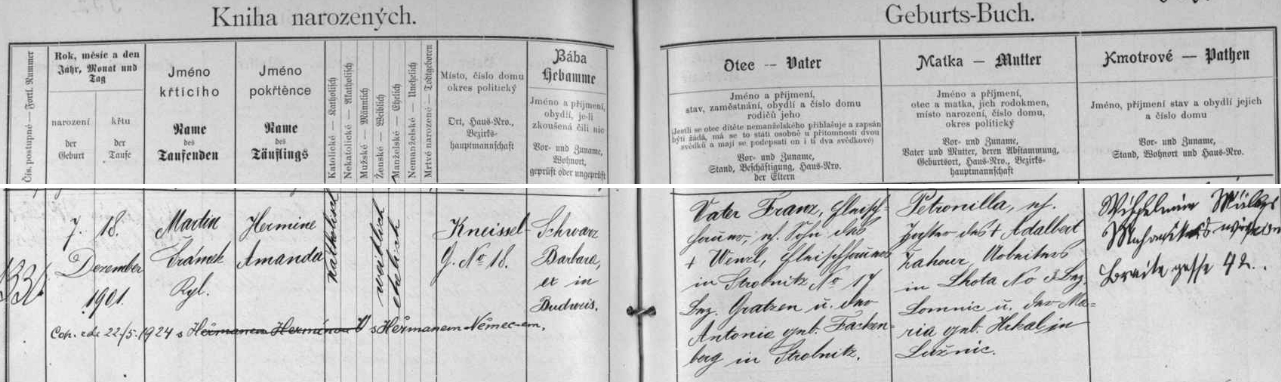 Kniha narozených.
Geburts-Buch.
Čís. postupné — Fortl. Nummer
Rok, měsíc a den
Jahr, Monat und
Tag
narození
der
Geburt
křtu
der
Taufe
Jméno
křticího
Name
des
Taufenden
Jméno
pokřtěnce
Name
des
Täuflings
Katolické — Katholisch
Nekatolické — Akatholisch
Mužské — Männlich
Ženské — Weiblich
Manželské — Ehelich
Nemanželské — Unehelich
Mrtvě narozené — Todtgeboren
Místo, číslo domu
okres politický
Ort, Haus-Nro.,
Bezirks-
hauptmannschaft
Bába
Hebamme
Jméno a příjmení,
obydlí, je-li
zkoušená čili nic
Vor- und Zuname,
Wohnort,
geprüft oder ungeprüft
Otec — Vater
Jméno a příjmení,
stav, zaměstnání, obydlí a číslo domu
rodičů jeho
(Jestli se otec dítěte nemanželského přihlašuje a zapsán
býti žádá, má se to státi osobně u přítomnosti dvou
svědků a mají se podepsati on i ti dva svědkové)
Vor- und Zuname,
Stand, Beschäftigung, Haus-Nro.
der Eltern
Matka — Mutter
Jméno a příjmení,
otec a matka, jich rodokmen,
místo narození, číslo domu,
okres politický
Vor- und Zuname,
Vater und Mutter, deren Abstammung,
Geburtsort, Haus-Nro., Bezirks-
hauptmannschaft
Kmotrové — Pathen
Jméno, příjmení stav a obydlí jejich
a číslo domu
Vor- und Zuname,
Stand, Wohnort und Haus-Nro.
7. 18.
Dezember
1901.
Martin
Hermine
Amanda
katholisch
weiblich
ehelich
Kneissel-
g. No 18.
Schwarz
Barbara,
ex in
Budweis.
Vater Franz, Fleisch-
hauer, eh. Sohn des
+ Wenzl, Fleischhauers
in Strobnitz No 17
Bez. Gratzen u. der
Antonia geb.
in Strobnitz.
Petronilla, eh.
Tochter des + Adalbert
Zahour,
in Lhota No 3 Bez.
Lomnic u. der Ma-
ria geb. in
Lužnic.
Wilhelmine
Breite gasse 42.
Cop. zde 22/5. 1924 s Heřmanem Němec-em.